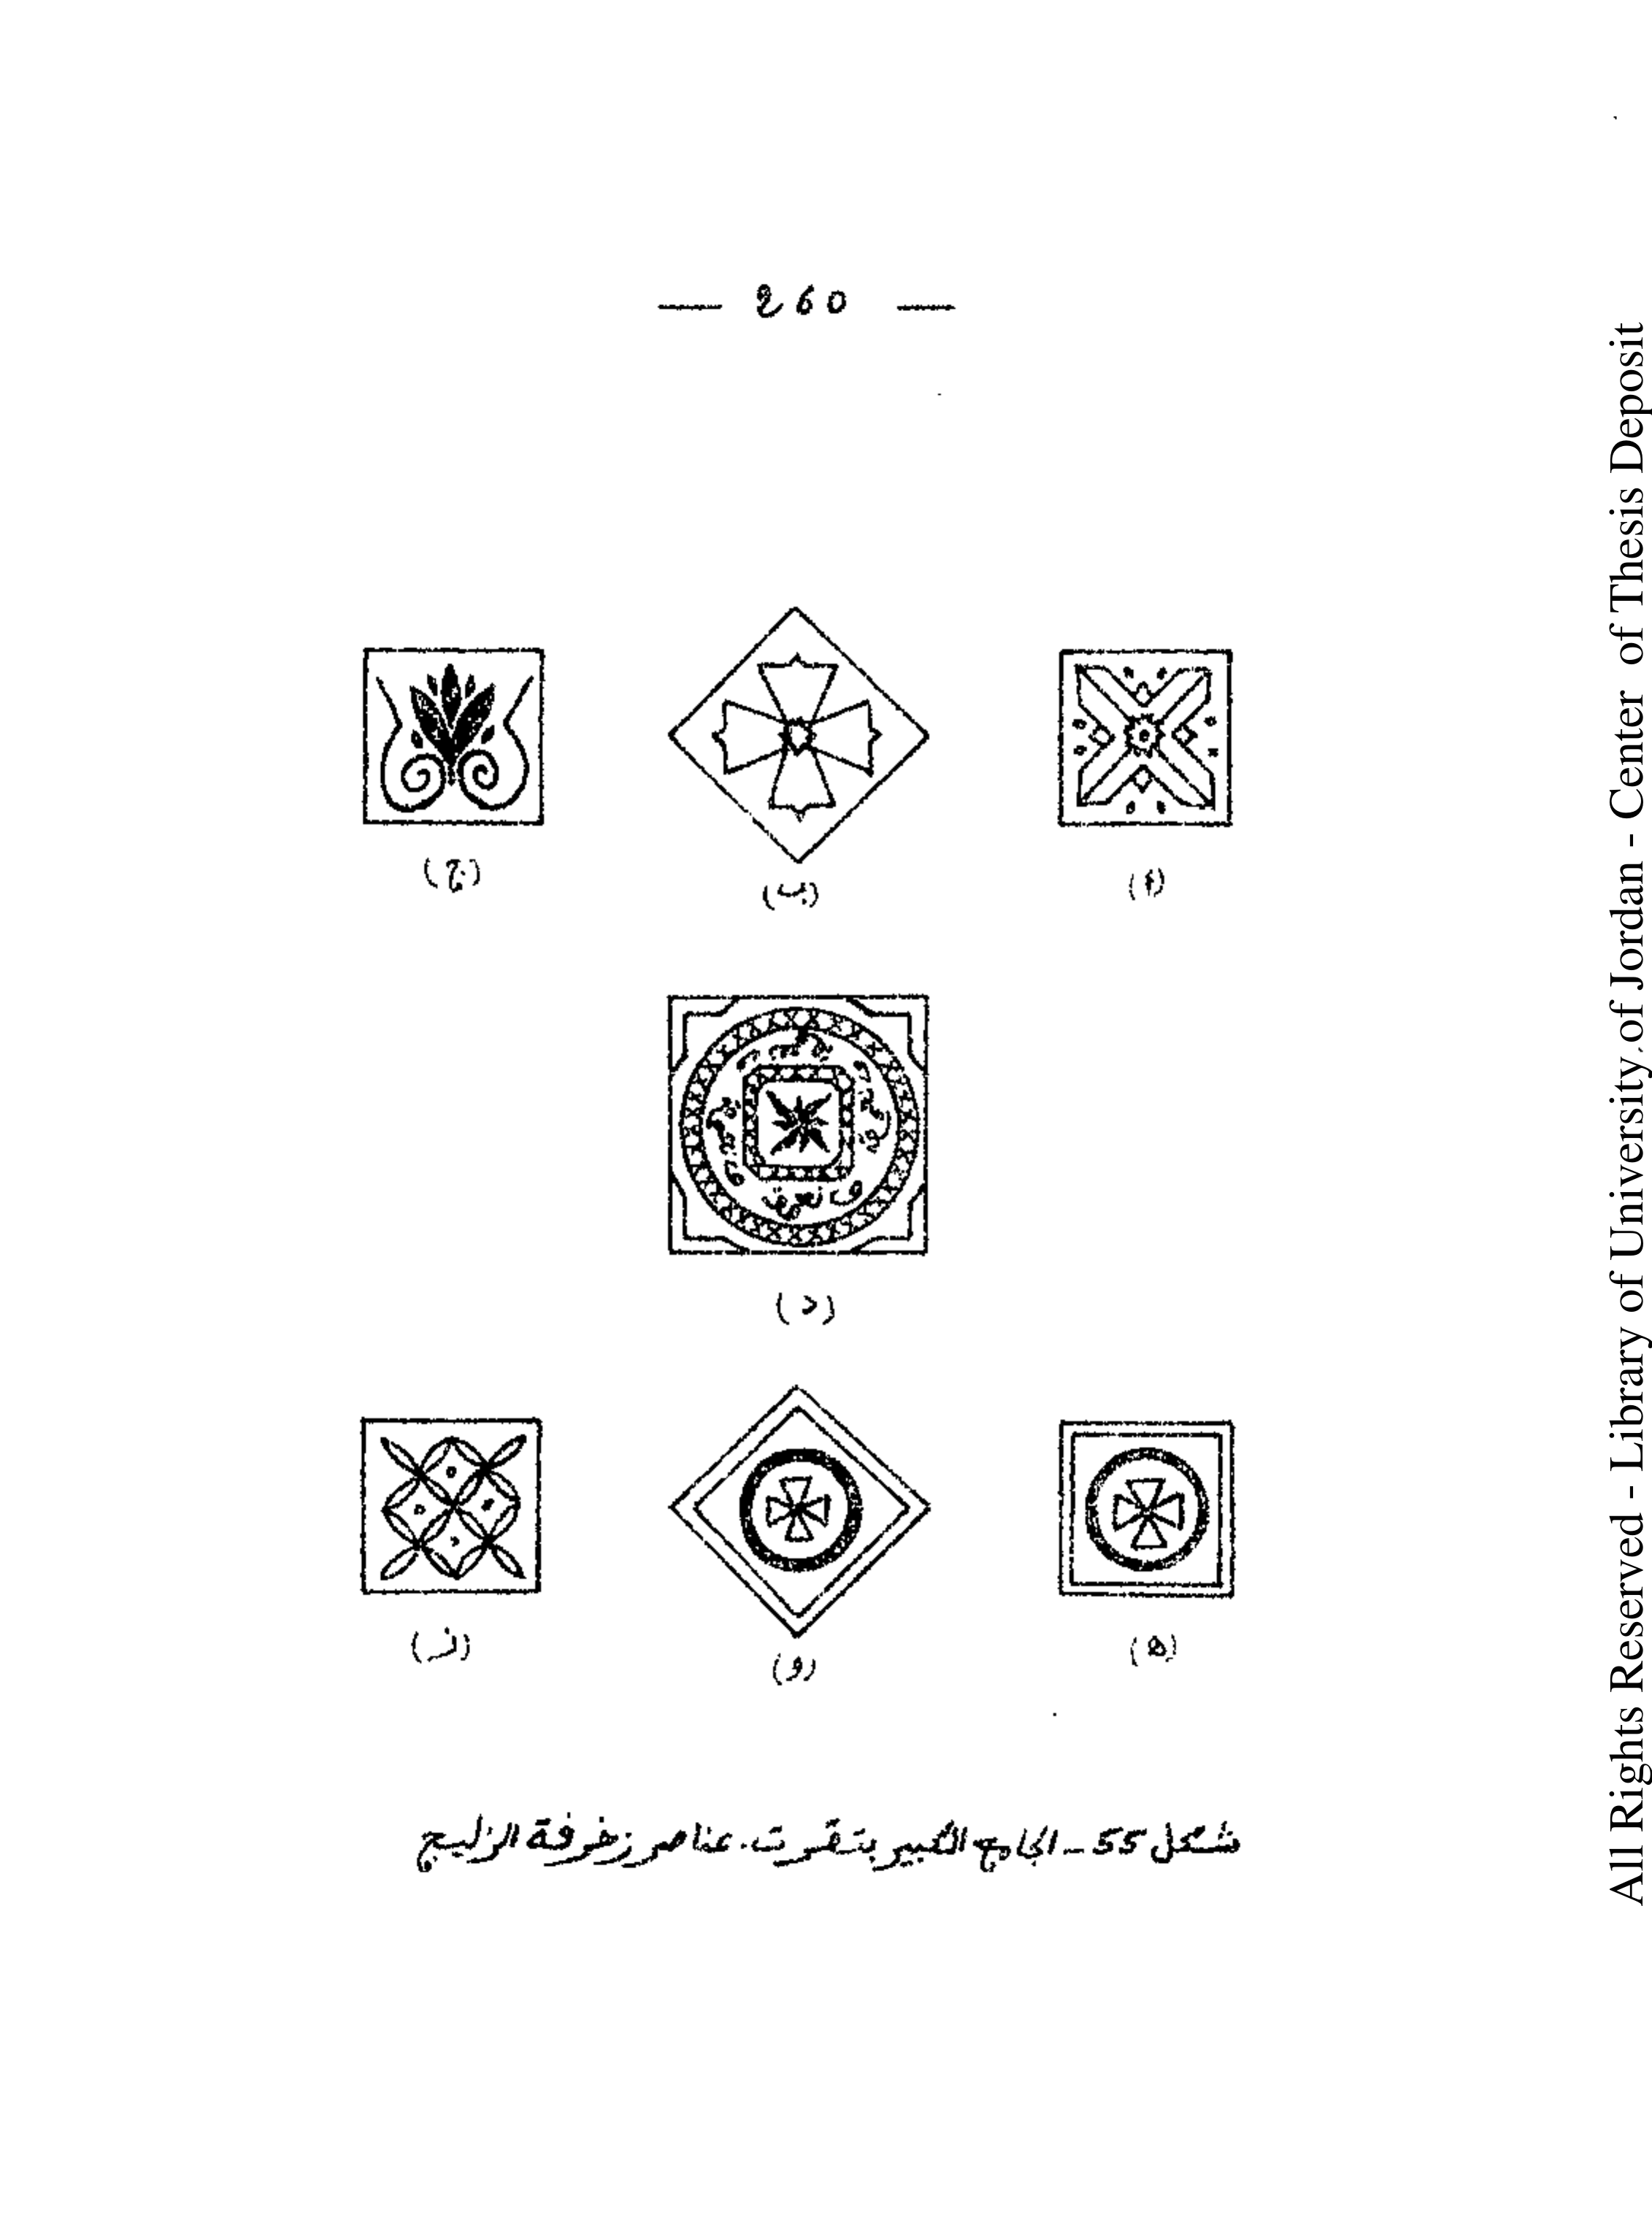 — 260 —
(أ)
(ب)
(ج)
(د)
(ه)
(و)
(ز)
شكل 55 - الجامع الكبير بتقرت. عناصر زخرفة الزليج
All Rights Reserved - Library of University of Jordan - Center of Thesis Deposit